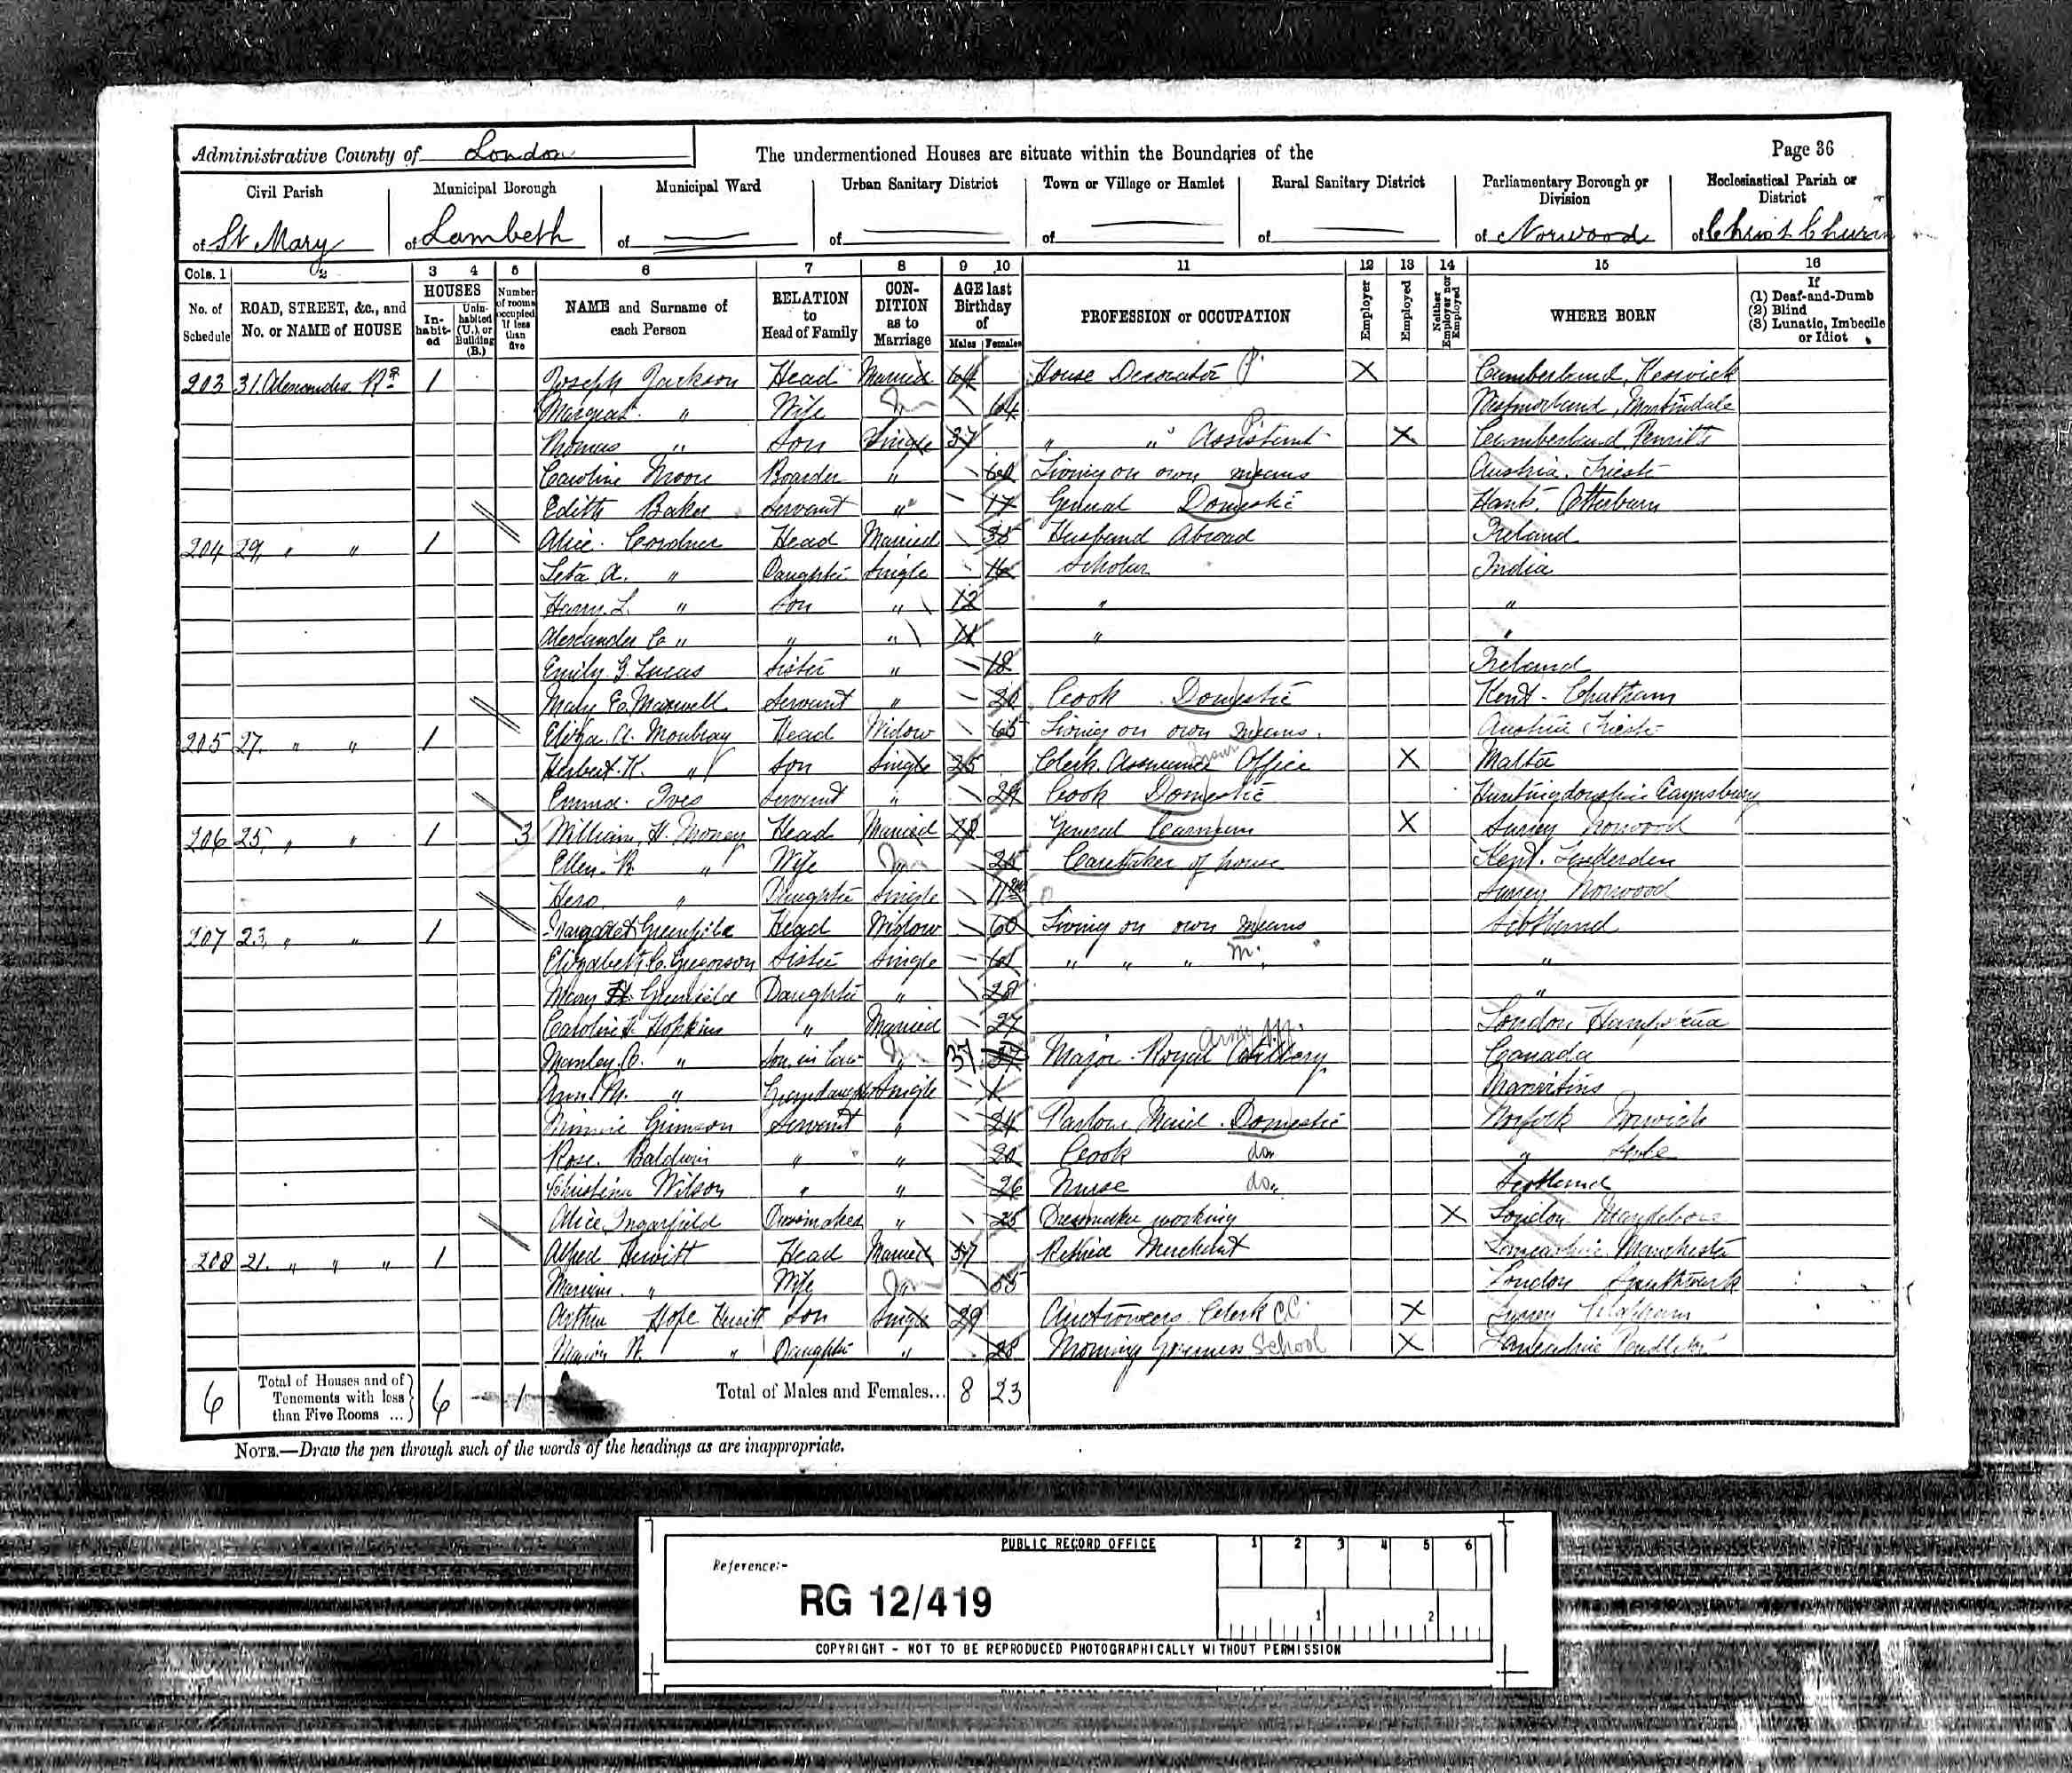 Administrative County of London
The undermentioned Houses are situate within the Boundaries of the
Page 36
Civil Parish of St Mary
Municipal Borough of Lambeth
Municipal Ward of
Urban Sanitary District of
Town or Village or Hamlet of
Rural Sanitary District of
Parliamentary Borough or Division of Norwood
Ecclesiastical Parish or District of Christ Church
Cols. 1 2 3 4 5 6 7 8 9 10 11 12 13 14 15 16
No. of Schedule
ROAD, STREET, &c., and No. or NAME of HOUSE
HOUSES
In-habit-ed
Unin-habited (U.), or Building (B.)
Number of rooms occupied if less than five
NAME and Surname of each Person
RELATION to Head of Family
CON-DITION as to Marriage
AGE last Birthday of
Males
Females
PROFESSION or OCCUPATION
Employer
Employed
Neither Employer nor Employed
WHERE BORN
If
(1) Deaf-and-Dumb
(2) Blind
(3) Lunatic, Imbecile or Idiot
203 31 Alexandra Rd 1 Joseph Jackson Head Married 64 House Decorator X Cumberland, Keswick
Margaret " Wife " 64 Westmorland, Martindale
Thomas " Son Single 37 " " Assistant X Cumberland Penrith
Caroline Moore Boarder " 60 Living on own means Austria. Trieste
Edith Baker Servant " 17 General Domestic Hants. Otterburn
204 29 " " 1 Alice Cordner Head Married 35 Husband Abroad Ireland
Leta A. " Daughter Single 16 Scholar India
Harry L. " Son " 12 " "
Alexander C " " " 11 " "
Emily G. Lucas Sister " 18 Ireland
Mary E. Maxwell Servant " 20 Cook Domestic Kent - Chatham
205 27. " " 1 Eliza A. Moubray Head Widow 65 Living on own means. Austria Trieste
Herbert K. " Son Single 25 Clerk Assurance Office X Malta
Emma Ives Servant " 29 Cook Domestic Huntingdonshire
206 25, " " 1 3 William H. Money Head Married 28 General Carman X Surrey Norwood
Ellen R. " Wife " 25 Caretaker of house Kent. Tenterden
Hero " Daughter Single 11 Surrey Norwood
207 23, " " 1 Margaret Greenfield Head Widow 60 Living on own means Scotland
Elizabeth C. Gregorson Sister Single 61 " " " " "
Mary H Greenfield Daughter " 28 "
Caroline H. Hopkins " Married 27 London Hampstead
Manley C. " Son in law " 37 Major Royal Artillery Canada
Ann M. " Granddaughter Single 1 Mauritius
Minnie Grimson Servant " 24 Parlour Maid. Domestic Norfolk Norwich
Rose. Baldwin " " 20 Cook do "
Christina Wilson " " 26 Nurse do " Scotland
Alice Ingarfield Dressmaker " 25 Dressmaker working X London Marylebone
208 21. " " " 1 Alfred Hewitt Head Married 57 Retired Merchant Lancashire Manchester
Marian. " Wife " 55 London Southwark
Arthur Hope Hewitt Son Single 29 Auctioneers Clerk CC. X Surrey Clapham
Marion " Daughter " 28 Morning Governess School X Lancashire Pendleton
6 Total of Houses and of Tenements with less than Five Rooms ... 6 - 1 Total of Males and Females... 8 23
NOTE.—Draw the pen through such of the words of the headings as are inappropriate.
PUBLIC RECORD OFFICE
1 2 3 4 5 6
Reference:-
RG 12/419
1 2
COPYRIGHT - NOT TO BE REPRODUCED PHOTOGRAPHICALLY WITHOUT PERMISSION